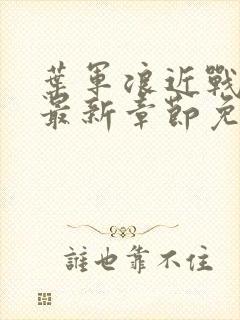 葉軍浪近戰
最新章節免
誰也靠不住